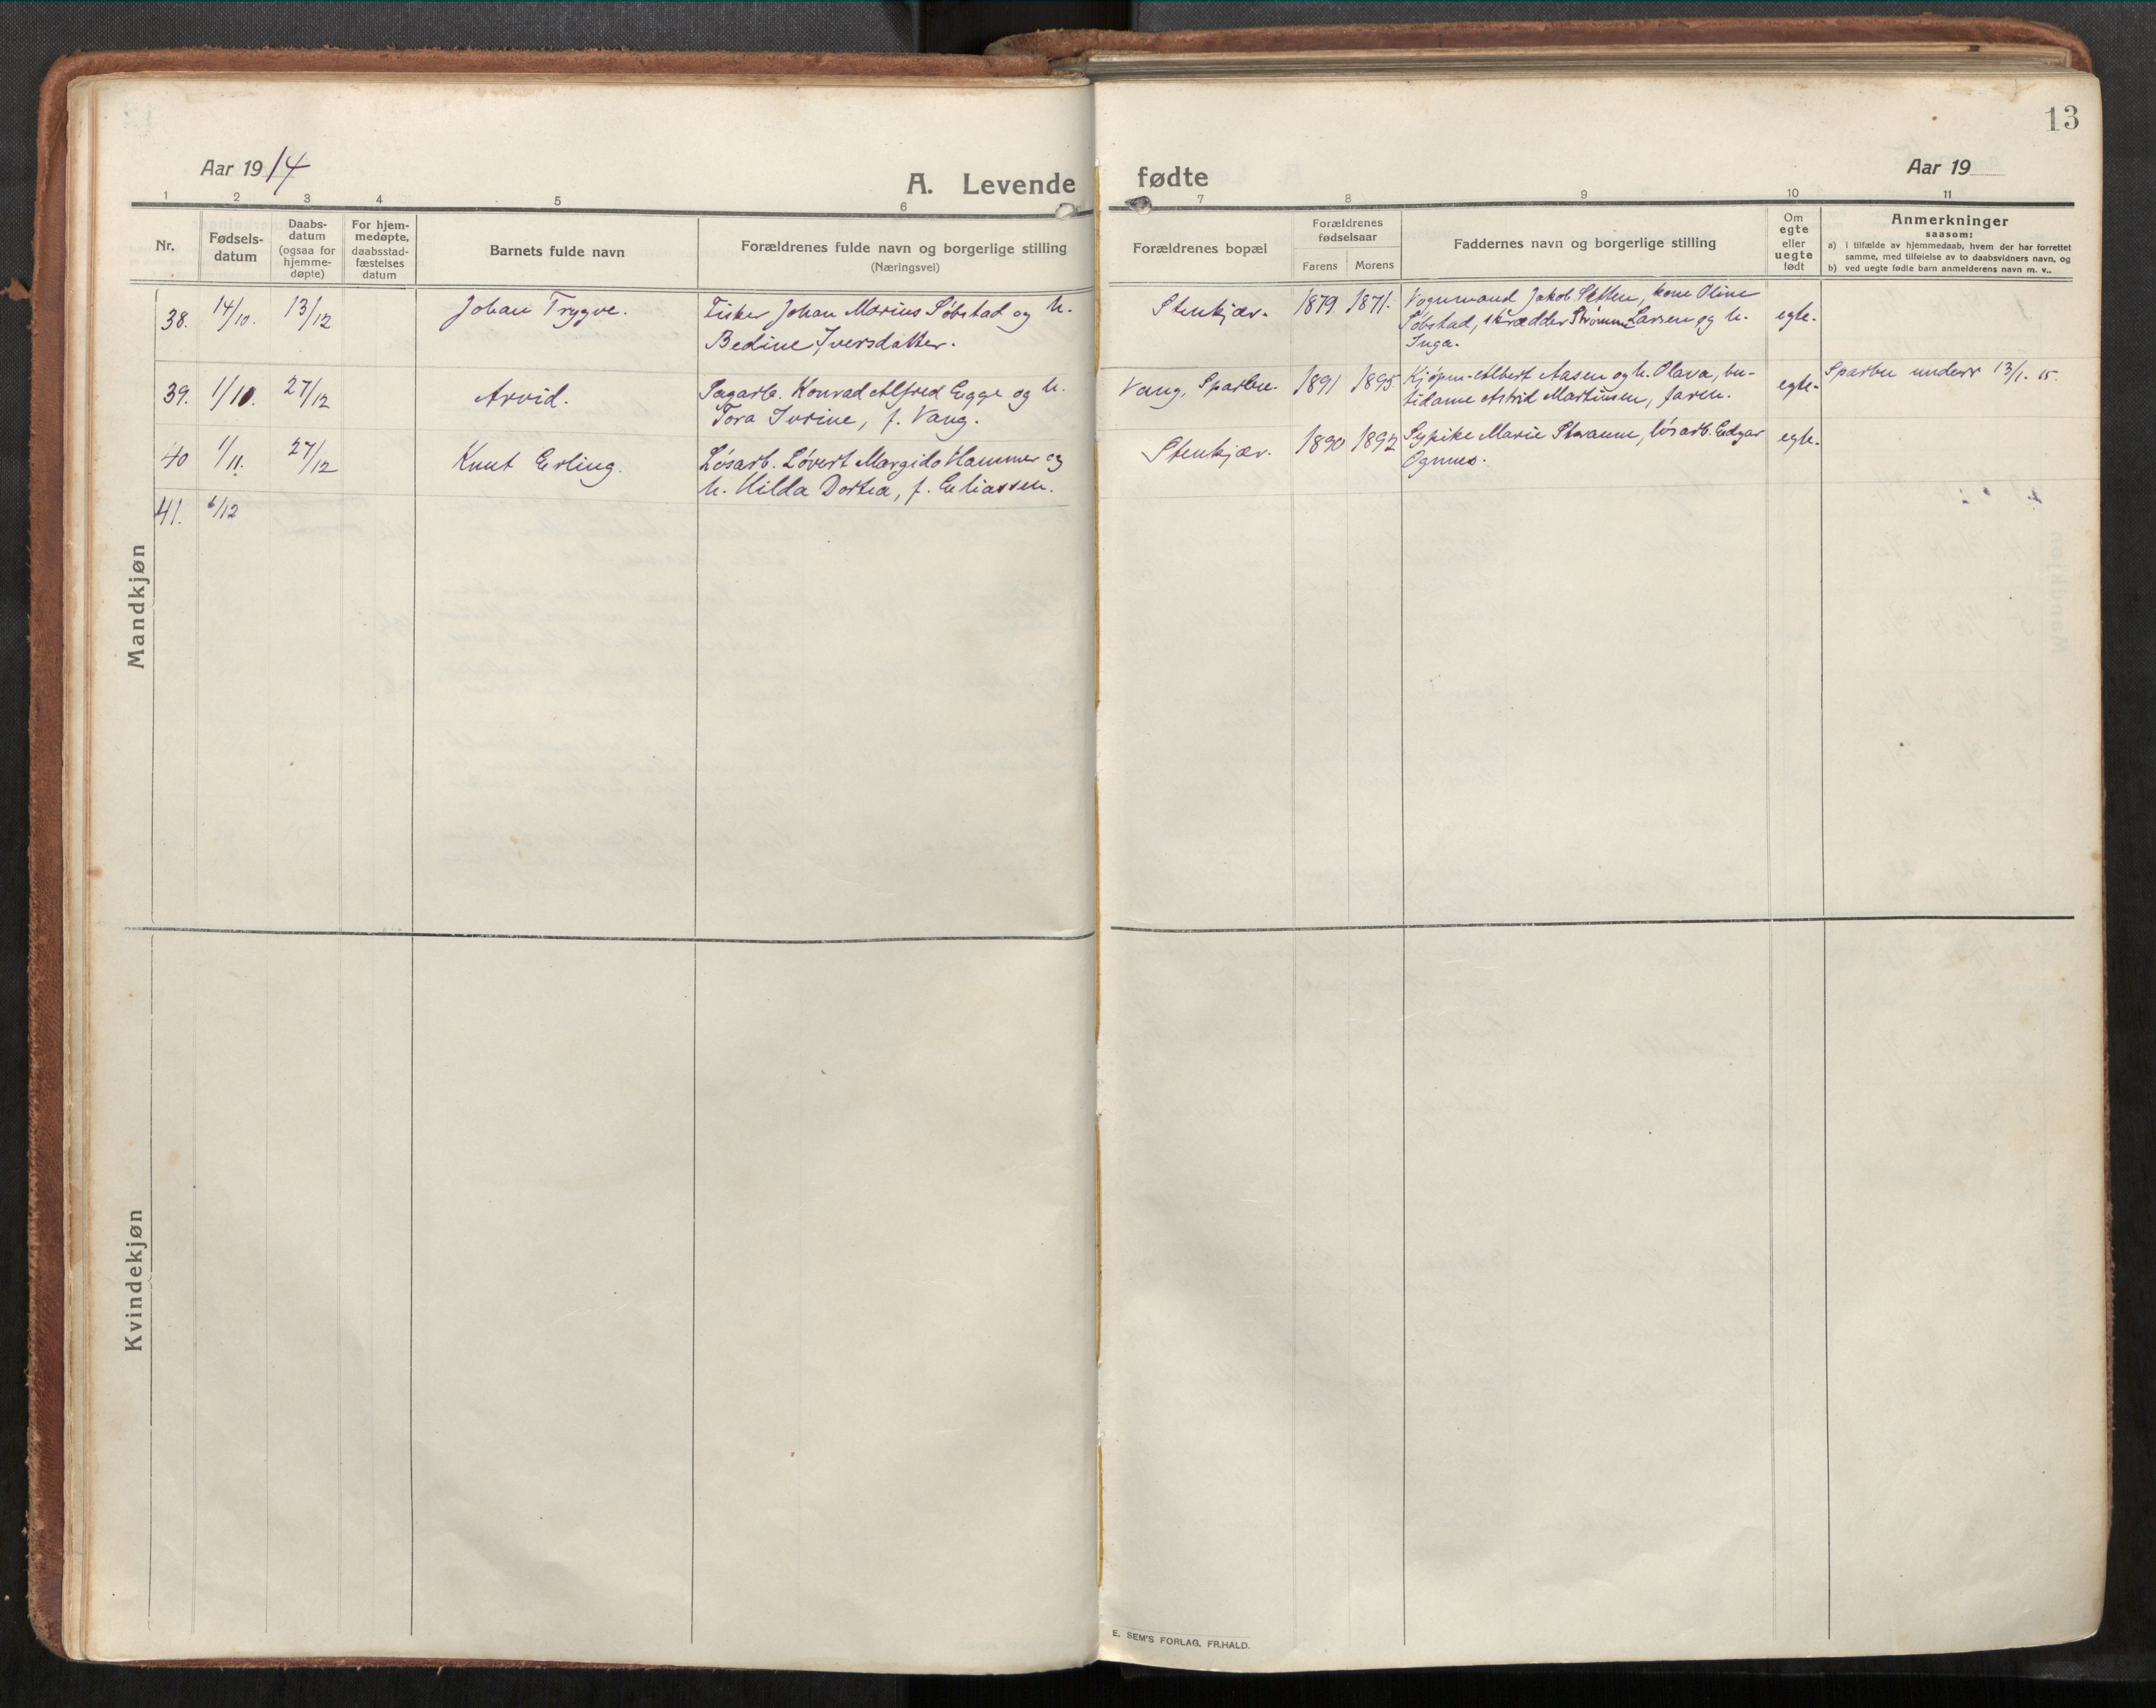 13
Aar 1914
A. Levende fødte
Aar 19
1 2 3 4 5 6 7 8 9 10 11
Nr.
Fødsels-
datum
Daabs-
datum
(ogsaa for
hjemme-
døpte)
For hjem-
medøpte,
daabsstad-
fæstelses
datum
Barnets fulde navn
Forældrenes fulde navn og borgerlige stilling
(Næringsvei)
Forældrenes bopæl
Forældrenes
fødselsaar
Farens Morens
Faddernes navn og borgerlige stilling
Om
egte
eller
uegte
født
Anmerkninger
saasom:
a) i tilfælde av hjemmedaab, hvem der har forrettet
samme, med tilføielse av to daabsvidners navn, og
b) ved uegte fødte barn anmelderens navn m. v..
Mandkjøn
38. 14/10. 13/12 Johan Trygve.
Fisker Johan Marius Søbstad og h.
Bedine Iversdatter.
Stenkjær. 1879. 1871.
Vognmand Jakob Setten, kone Oline
Søbstad, skrædder Strømme Larsen og h.
Inga.
egte.
39. 1/10. 27/12 Arvid.
Sagarb. Konrad Alfred Egge og h.
Tora Ivrine, f. Vang.
Vang, Sparbu. 1891 1895
Kjøpm. Albert Aasen og h. Olava, bu-
tidame Astrid Martinsen, faren.
egte.
Sparbu underr 13/1. 15.
40 1/11. 27/12 Knut Erling.
Løsarb. Løvert Margido Hammer og
h. Hilda Dortea, f. Eliassen.
Stenkjær. 1890 1892
Sypike Marie , løsarb. Edgar
Ognnes.
egte.
41. 6/12
Kvindekjøn
E. SEM'S FORLAG, FR.HALD.